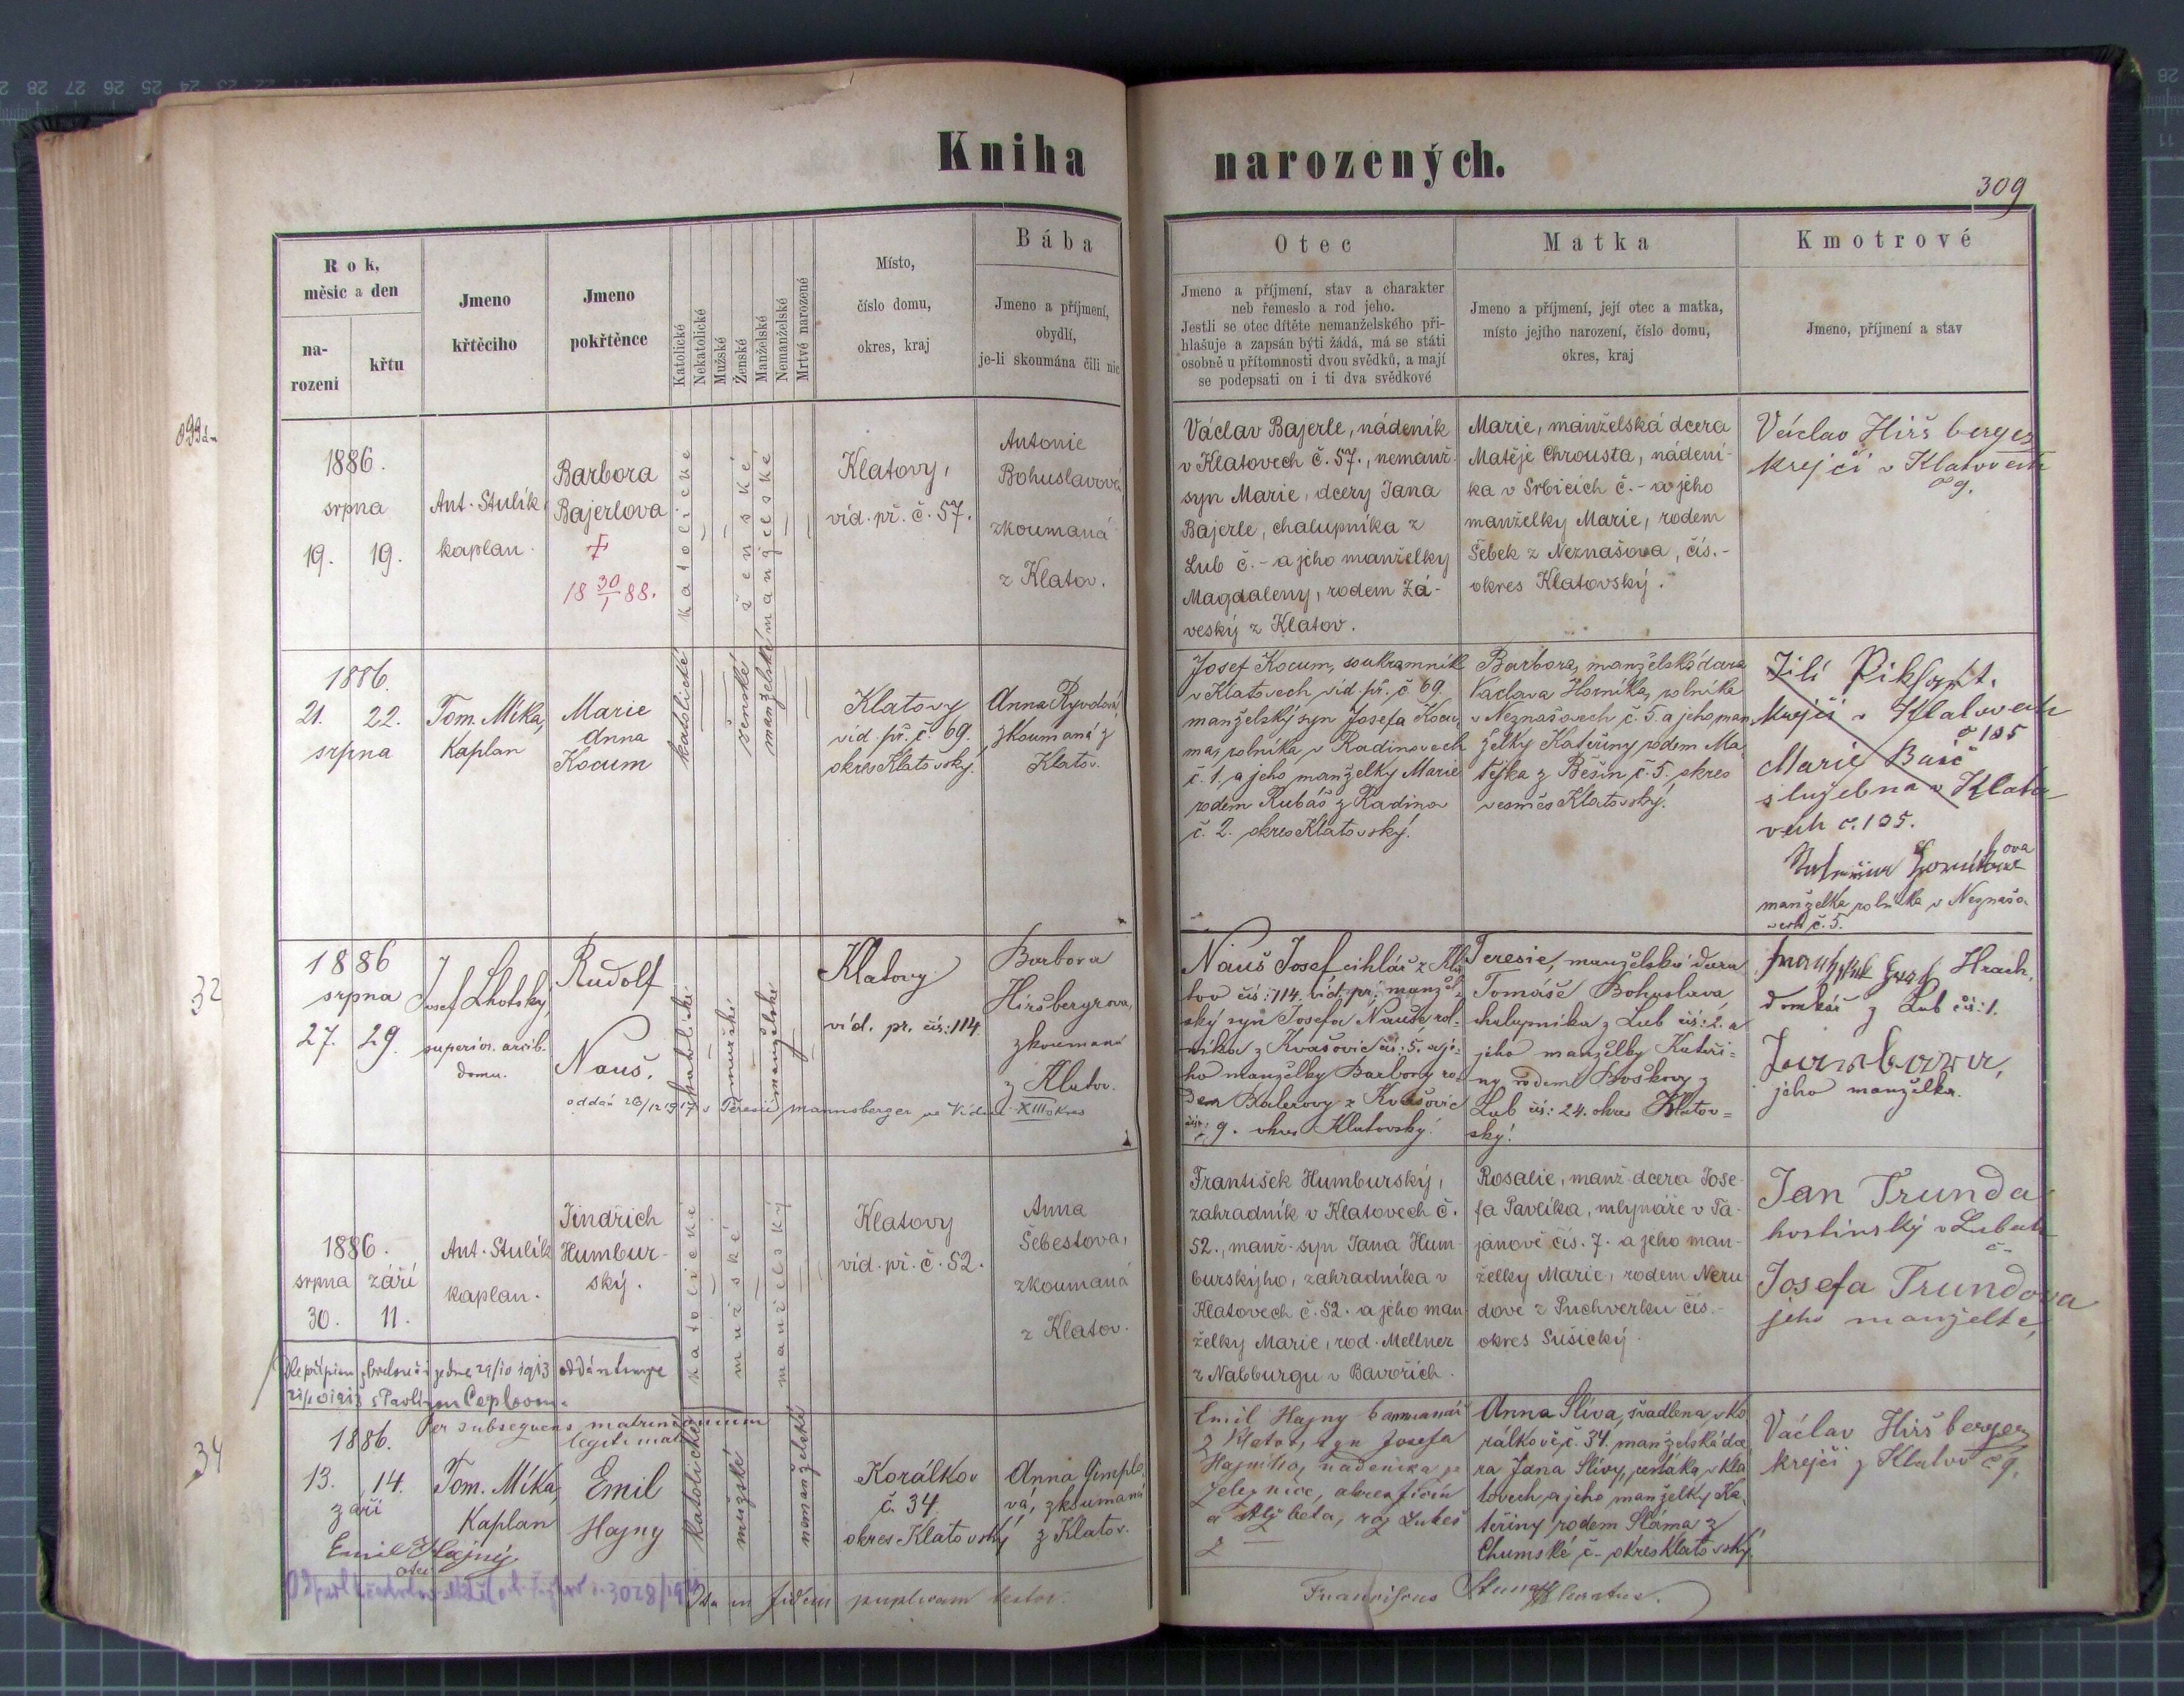 Kniha narozených.
309
Rok,
měsíc a den
na-
rozeni
křtu
Jmeno
křtěcího
Jmeno
pokřtěnce
Katolické
Nekatolické
Mužské
Ženské
Manželské
Nemanželské
Mrtvé narozené
Místo,
číslo domu,
okres, kraj
Bába
Jmeno a příjmení,
obydlí,
je-li skoumána čili nic
Otec
Jmeno a příjmení, stav a charakter
neb řemeslo a rod jeho.
Jestli se otec dítěte nemanželského při-
hlašuje a zapsán býti žádá, má se státi
osobně u přítomnosti dvou svědků, a mají
se podepsati on i ti dva svědkové
Matka
Jmeno a příjmení, její otec a matka,
místo jejího narození, číslo domu,
okres, kraj
Kmotrové
Jmeno, příjmení a stav
1886.
srpna
19. 19.
Ant. Stulík,
kaplan.
Barbora
Bajerlova
18 30/1 88.
katolické
ženské
manželské
Klatovy,
víd. př. č. 57.
Antonie
Bohuslavová
zkoumaná
z Klatov.
Václav Bajerle, nádeník
v Klatovech č. 57., nemanž.
syn Marie, dcery Jana
Bajerle, chalupníka z
Lub č. - a jeho manželky
Magdaleny, rodem Zá-
veský z Klatov.
Marie, manželská dcera
Matěje Chrousta, nádení-
ka v Srbicích č. - a jeho
manželky Marie, rodem
Šebek z Neznašova, čís. -
okres Klatovský.
Václav Hiršberger
krejčí v Klatovech
č 9.
1886.
21. 22.
srpna
Tom. Míka,
Kaplan
Marie
Anna
Kocum
katolické
ženské
manželské
Klatovy
víd. př. č. 69.
okres Klatovský.
Anna Rývdová,
zkoumaná z
Klatov.
Josef Kocum, soukromník
v Klatovech víd. př. č 69.
manželský syn Josefa Kocu-
ma, rolníka v Radinovech
č. 1. a jeho manželky Marie
rodem Rubáš z Radinov
č. 2. okres Klatovský.
Barbora, manželská dcera
Václava Horníka, rolníka
v Neznašovech č. 5. a jeho man
želky Kateřiny rodem Ma-
tějka z Běšin č. 5. okres
vesměs Klatovský.
Jilí
krejčí v Klatovech
č 135
Marie
služebna v Klato
vech č. 135.
manželka rolníka v Neznašo-
vech č. 5.
32
1886
srpna
27. 29.
Josef Lhotský,
superior. arcib.
domu.
Rudolf
Nauš.
katolické
mužské
manželské
Klatovy
víd. pr. čís: 114
Barbora
Hiršbergrova,
zkoumaná
z Klatov.
oddán 26/12 1917 s Teresií Mannsberger ve Vídni XIII okres
Nauš Josef cihlář z Kla
tov čís: 114. víd: př: manžel-
ský syn Josefa Nauše rol-
níka z Kvašovic čís: 5. a je-
ho manželky Barbory ro-
dem Balerovy z Kvašovic
čís: 9. okres Klatovský.
Teresie, manželská dcera
Tomáše Bohuslava,
chalupníka z Lub čís: 2. a
jeho manželky Kateři-
ny rodem Boškovy z
Lub čís: 24. okres Klatov-
ský!
Hrach,
domkář z Lub čís: 1.
Barbora,
jeho manželka.
1886.
srpna září
30. 11.
Ant. Stulík
kaplan.
Jindřich
Humbur-
ský.
katolické
mužské
manželský
Klatovy
víd. př. č. 52.
Anna
Šebestova,
zkoumaná
z Klatov.
František Humburský,
zahradník v Klatovech č.
52., manž. syn Jana Hum
burskýho, zahradníka v
Klatovech č. 52. a jeho man
želky Marie, rod. Mellner
z Nabburgu v Bavořích.
Rosalie, manž. dcera Jose-
fa Pavlíka, mlynáře v Ta-
janově čís. 7. a jeho man-
želky Marie, rodem Neru
dové z Puchverku čís. -
okres Sušický.
Jan Trunda
hostinský v Lubech
č -
Josefa Trundova
jeho manželka,
34
1886.
Per subsequens matrimonium
legitimatus
13. 14.
září
Tom. Míka,
Kaplan
Emil
Hajny
katolické
mužské
nemanželské
Korálkov
č. 34
okres Klatovský
Anna Gimplo-
vá, zkoumaná
z Klatov.
Emil Hajný
otec
Emil Hajny
z Klatov, syn Josefa
Hajného, nádeníka z
Železnice, okres Jičín
a Alžběta, roz. Lukeš
z —
Anna Slíva, švadlena, v Ko
rálkově č. 34. manželská dce
ra Jana Slívy, v Kla
tovech, a jeho manželky Ka-
teřiny rodem Sláma z
Chumské č. - okres Klatovský.
Václav Hiršberger
krejčí z Klatov č 9.
In fidem publicam testor.